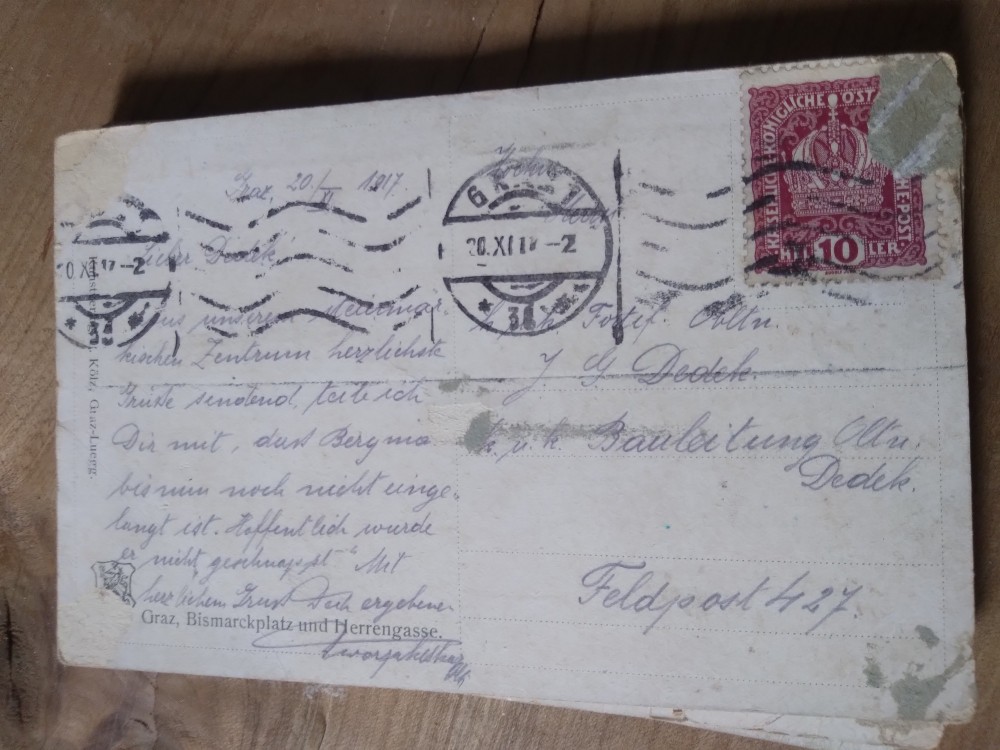 Graz, 20./XI 1917.
Lieber Dedek
Aus unserem
kischen Zentrum herzlichste
Grüße sendend, teile ich
Dir mit, dass Bergma
bis nun noch nicht einge-
langt ist. Hoffentlich wurde
er nicht "geschnappt" Mit
herzlichem Gruss Dein ergebener
Graz, Bismarckplatz und Herrengasse.
Kölz, Graz-Luegg.
0.XI 17-2
6
1
20.XI 17-2
KAISERLICHE KÖNIGLICHE ÖST
POST
10
HELLER
Obltn.
J G Dedek.
k. u. k. Bauleitung Obltn.
Dedek.
Feldpost 427